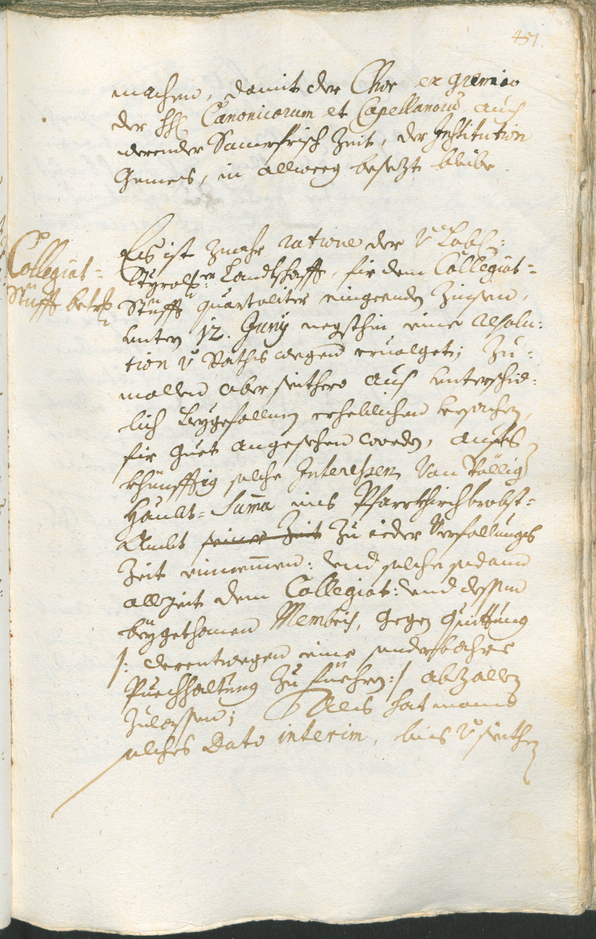 451.
machen, damit der Chor ex gremio
der HH: Canonicorum et Capellanorum auch
werender Saurfrisch Zeit, der Institution
Gemeß, in allweeg besezt bleibe.
Collegiat-
Stüfft betr:
Es ist zwahr ratione der V Lobl:
Tyroll: Landtschafft, für dem Collegiat-
Stüfft quartaliter eingeenden Zinsen,
unterm 12. Juny negsthin eine resolu-
tion V Raths wegen ervolget; Zu-
mallen aber seithero auß unterschid-
lich beygefallnen erheblichen Ursachen,
für guet angesehen worden, anstes
khünfftig solche Interessen Von Völlig
Haubt-Suma ins Pfarrkirchbrobst-
Ambt seiner Zeit zu ieder Verfallungs
Zeit einnemmen: und solche sodann
allzeit dem Collegiat: und dessen
beygethonen Membris, gegen Quittung
/: derentwegen eine sonderbahre
Puechhaltung zu füehren :/ abzallen
zulassen; Als hat mans
solches Dato interim, bis V seithen